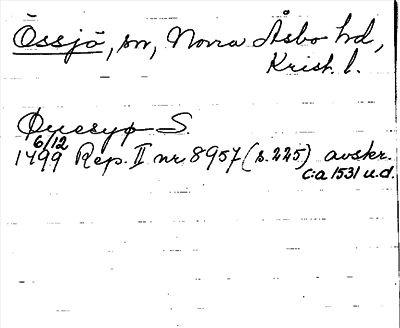 Össjö, sn, Norra Åsbo hd,
Krist. l.
Øyesyø S.
6/12
1499 Rep. II nr 8957 (s. 225) avskr.
ca 1531 u.d.